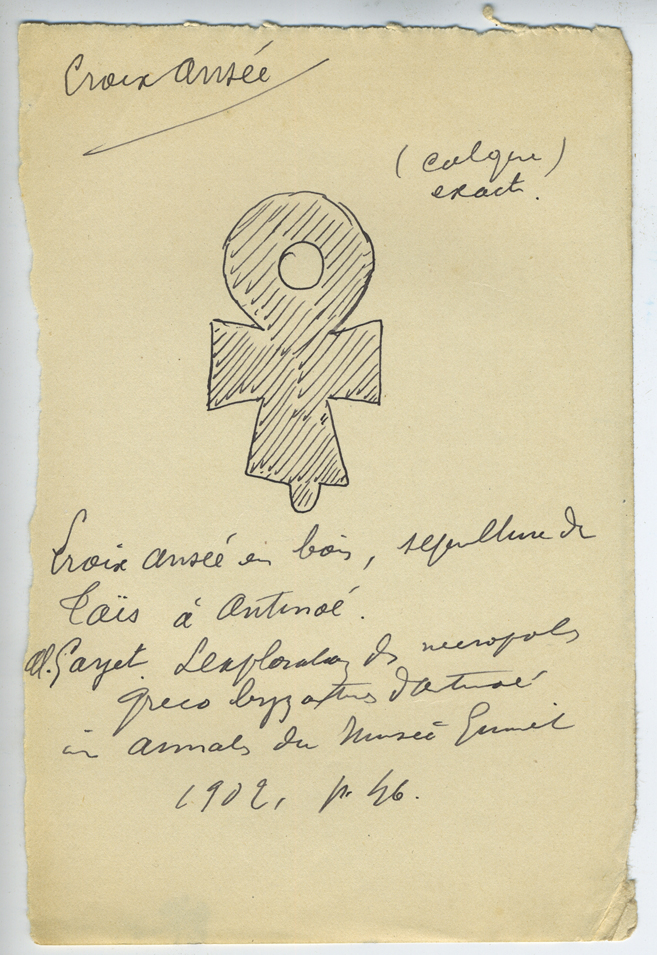 Croix ansée
(calque)
exact.
Croix ansée en bois, sepulture de
Taïs à Antinoé.
Al. Gayet. L'exploration des necropoles
greco byzantines d'Antinoé
in annales du Musée Guimet
1902, p. 46.